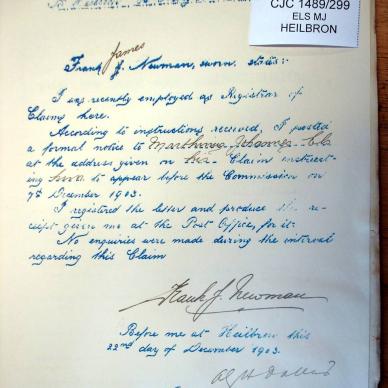 CJC 1489/299
ELS MJ
HEILBRON
James
Frank J. Newman, sworn, states:-
I was recently employed as Registrar of
Claims here.
According to instructions received, I posted
a formal notice to Marthinus Johannes Els
at the address given on his Claim instruct-
ing him to appear before the Commission on
7th December 1903.
I registered the letter and produce the re-
ceipt given me at the Post Office, for it.
No enquiries were made during the interval
regarding this Claim
Frank J. Newman
Before me at Heilbron this
22nd day of December 1903.